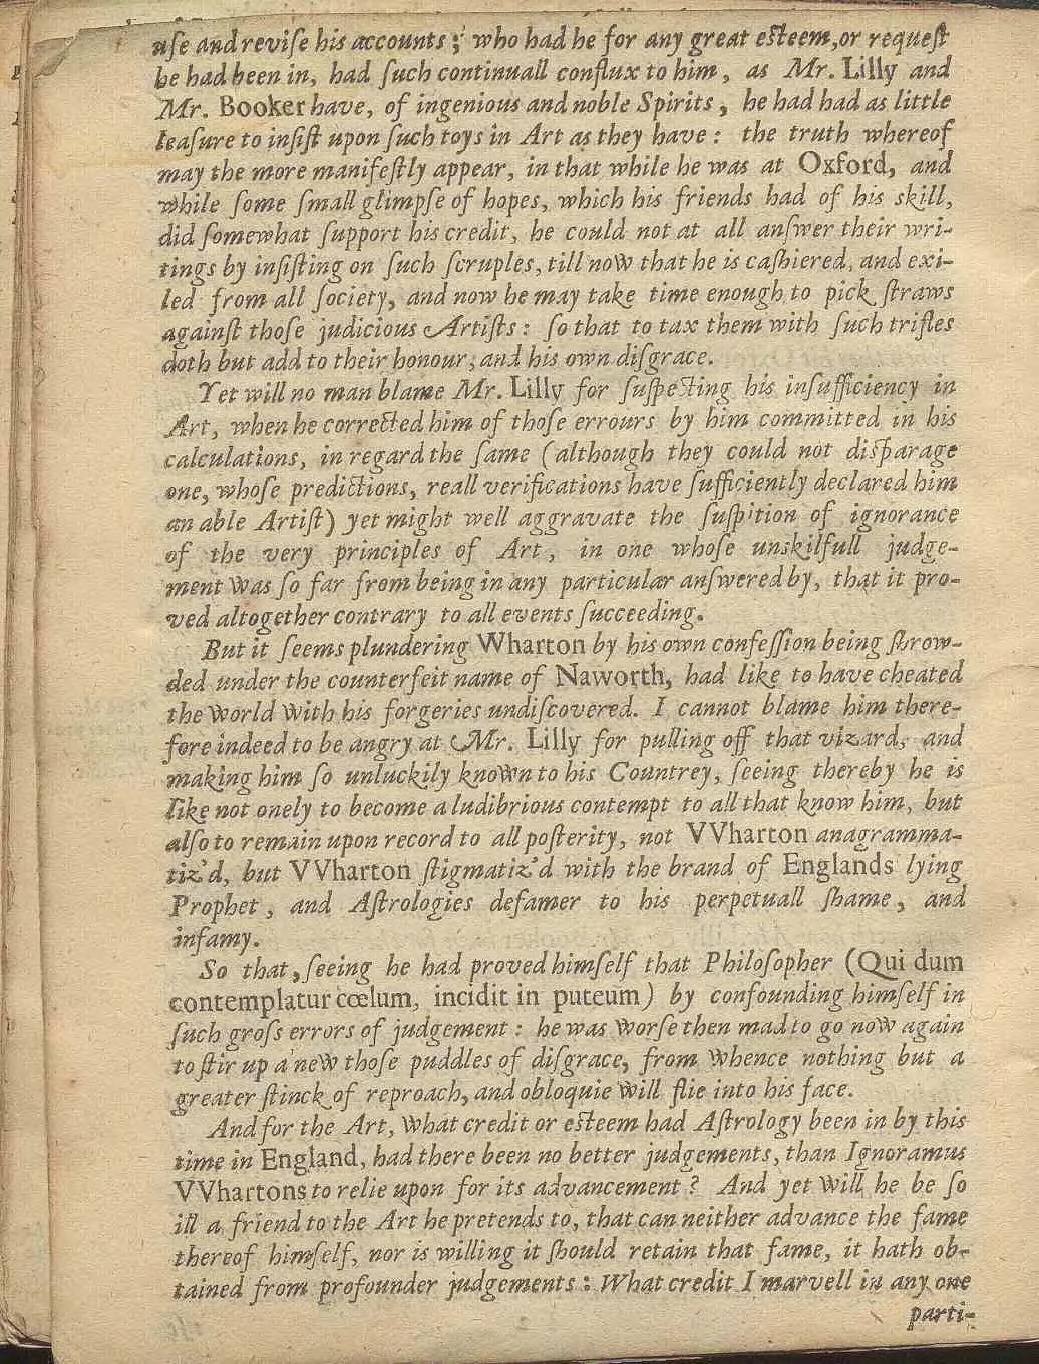 uſe and reviſe his accounts; who had he for any great eſteem, or requeſt
he had been in, had ſuch continuall conflux to him, as Mr. Lilly and
Mr. Booker have, of ingenious and noble Spirits, he had had as little
leaſure to inſiſt upon ſuch toys in Art as they have: the truth whereof
may the more manifeſtly appear, in that while he was at Oxford, and
while ſome ſmall glimpſe of hopes, which his friends had of his skill,
did ſomewhat ſupport his credit, he could not at all anſwer their wri-
tings by inſiſting on ſuch ſcruples, till now that he is caſhiered, and exi-
led from all ſociety, and now he may take time enough to pick ſtraws
againſt thoſe judicious Artiſts: ſo that to tax them with ſuch trifles
doth but add to their honour, and his own diſgrace.
Yet will no man blame Mr. Lilly for ſuſpecting his inſufficiency in
Art, when he corrected him of thoſe errours by him committed in his
calculations, in regard the ſame (although they could not diſparage
one, whoſe predictions, reall verifications have ſufficiently declared him
an able Artiſt) yet might well aggravate the ſuſpition of ignorance
of the very principles of Art, in one whoſe unskilfull judge-
ment was ſo far from being in any particular anſwered by, that it pro-
ved altogether contrary to all events ſucceeding.
But it ſeems plundering Wharton by his own confeſſion being ſhrow-
ded under the counterfeit name of Naworth, had like to have cheated
the world with his forgeries undiſcovered. I cannot blame him there-
fore indeed to be angry at Mr. Lilly for pulling off that vizard, and
making him ſo unluckily known to his Countrey, ſeeing thereby he is
like not onely to become a ludibrious contempt to all that know him, but
alſo to remain upon record to all poſterity, not VVharton anagramma-
tiz'd, but VVharton ſtigmatiz'd with the brand of Englands lying
Prophet, and Aſtrologies defamer to his perpetuall ſhame, and
infamy.
So that, ſeeing he had proved himſelf that Philoſopher (Qui dum
contemplatur cœlum, incidit in puteum) by confounding himſelf in
ſuch groſs errors of judgement: he was worſe then mad to go now again
to ſtir up a new thoſe puddles of diſgrace, from whence nothing but a
greater ſtinck of reproach, and obloquie will flie into his face.
And for the Art, what credit or eſteem had Aſtrology been in by this
time in England, had there been no better judgements, than Ignoramus
VVhartons to relie upon for its advancement? And yet will he be ſo
ill a friend to the Art he pretends to, that can neither advance the fame
thereof himſelf, nor is willing it ſhould retain that fame, it hath ob-
tained from profounder judgements: What credit I marvell in any one
parti-